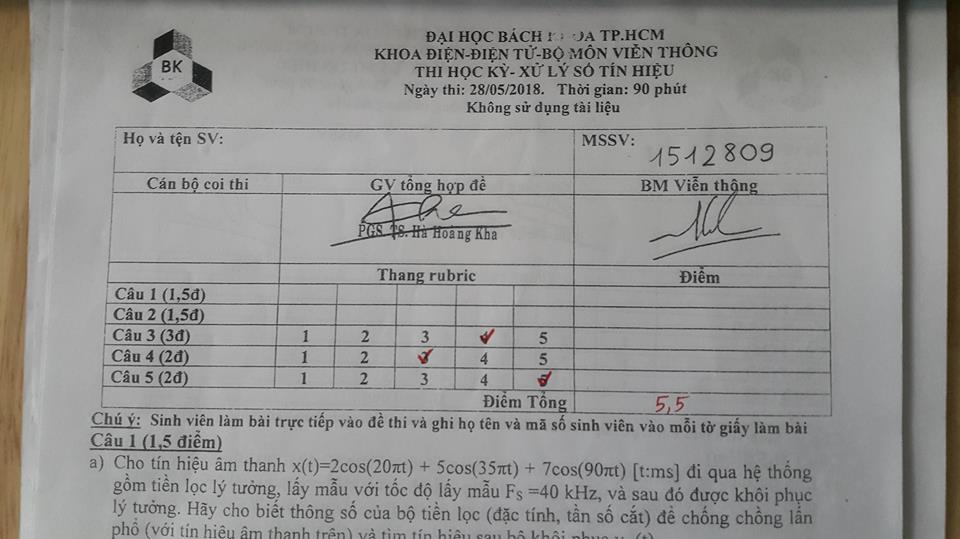 BK
ĐẠI HỌC BÁCH OA TP.HCM
KHOA ĐIỆN-ĐIỆN TỬ-BỘ MÔN VIỄN THÔNG
THI HỌC KỲ- XỬ LÝ SỐ TÍN HIỆU
Ngày thi: 28/05/2018. Thời gian: 90 phút
Không sử dụng tài liệu
Họ và tên SV: MSSV: 1512809
Cán bộ coi thi GV tổng hợp đề BM Viễn thông
PGS. TS. Hà Hoàng Kha
Thang rubric Điểm
Câu 1 (1,5đ)
Câu 2 (1,5đ)
Câu 3 (3đ) 1 2 3 4 5
Câu 4 (2đ) 1 2 3 4 5
Câu 5 (2đ) 1 2 3 4 5
Điểm Tổng 5,5
Chú ý: Sinh viên làm bài trực tiếp vào đề thi và ghi họ tên và mã số sinh viên vào mỗi tờ giấy làm bài
Câu 1 (1,5 điểm)
a) Cho tín hiệu âm thanh x(t)=2cos(20πt) + 5cos(35πt) + 7cos(90πt) [t:ms] đi qua hệ thống
gồm tiền lọc lý tưởng, lấy mẫu với tốc độ lấy mẫu Fs =40 kHz, và sau đó được khôi phục
lý tưởng. Hãy cho biết thông số của bộ tiền lọc (đặc tính, tần số cắt) để chống chồng lấn
phổ (với tín hiệu âm thanh trên) và tìm tín hiệu sau bộ khôi phục